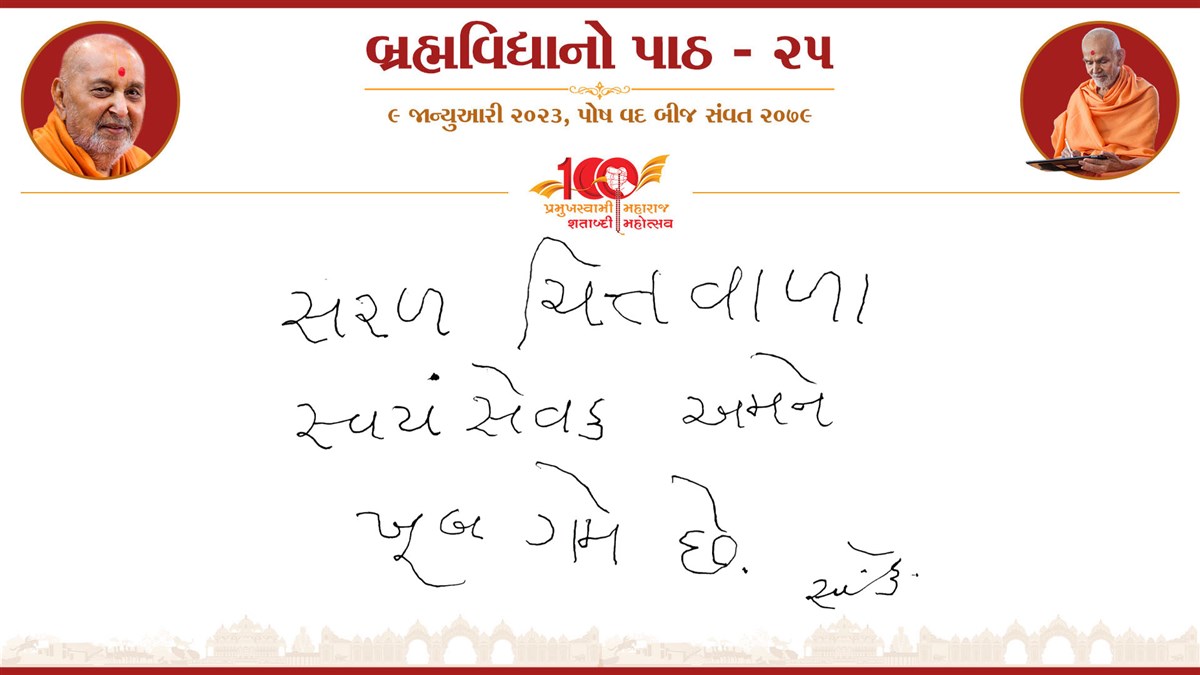 બ્રહ્મવિદ્યાનો પાઠ - ૨૫
૯ જાન્યુઆરી ૨૦૨૩, પોષ વદ બીજ સંવત ૨૦૭૯
100
પ્રમુખસ્વામી મહારાજ
શતાબ્દી મહોત્સવ
સરળ ચિત્તવાળા
સ્વયંસેવક અમને
ખૂબ ગમે છે.